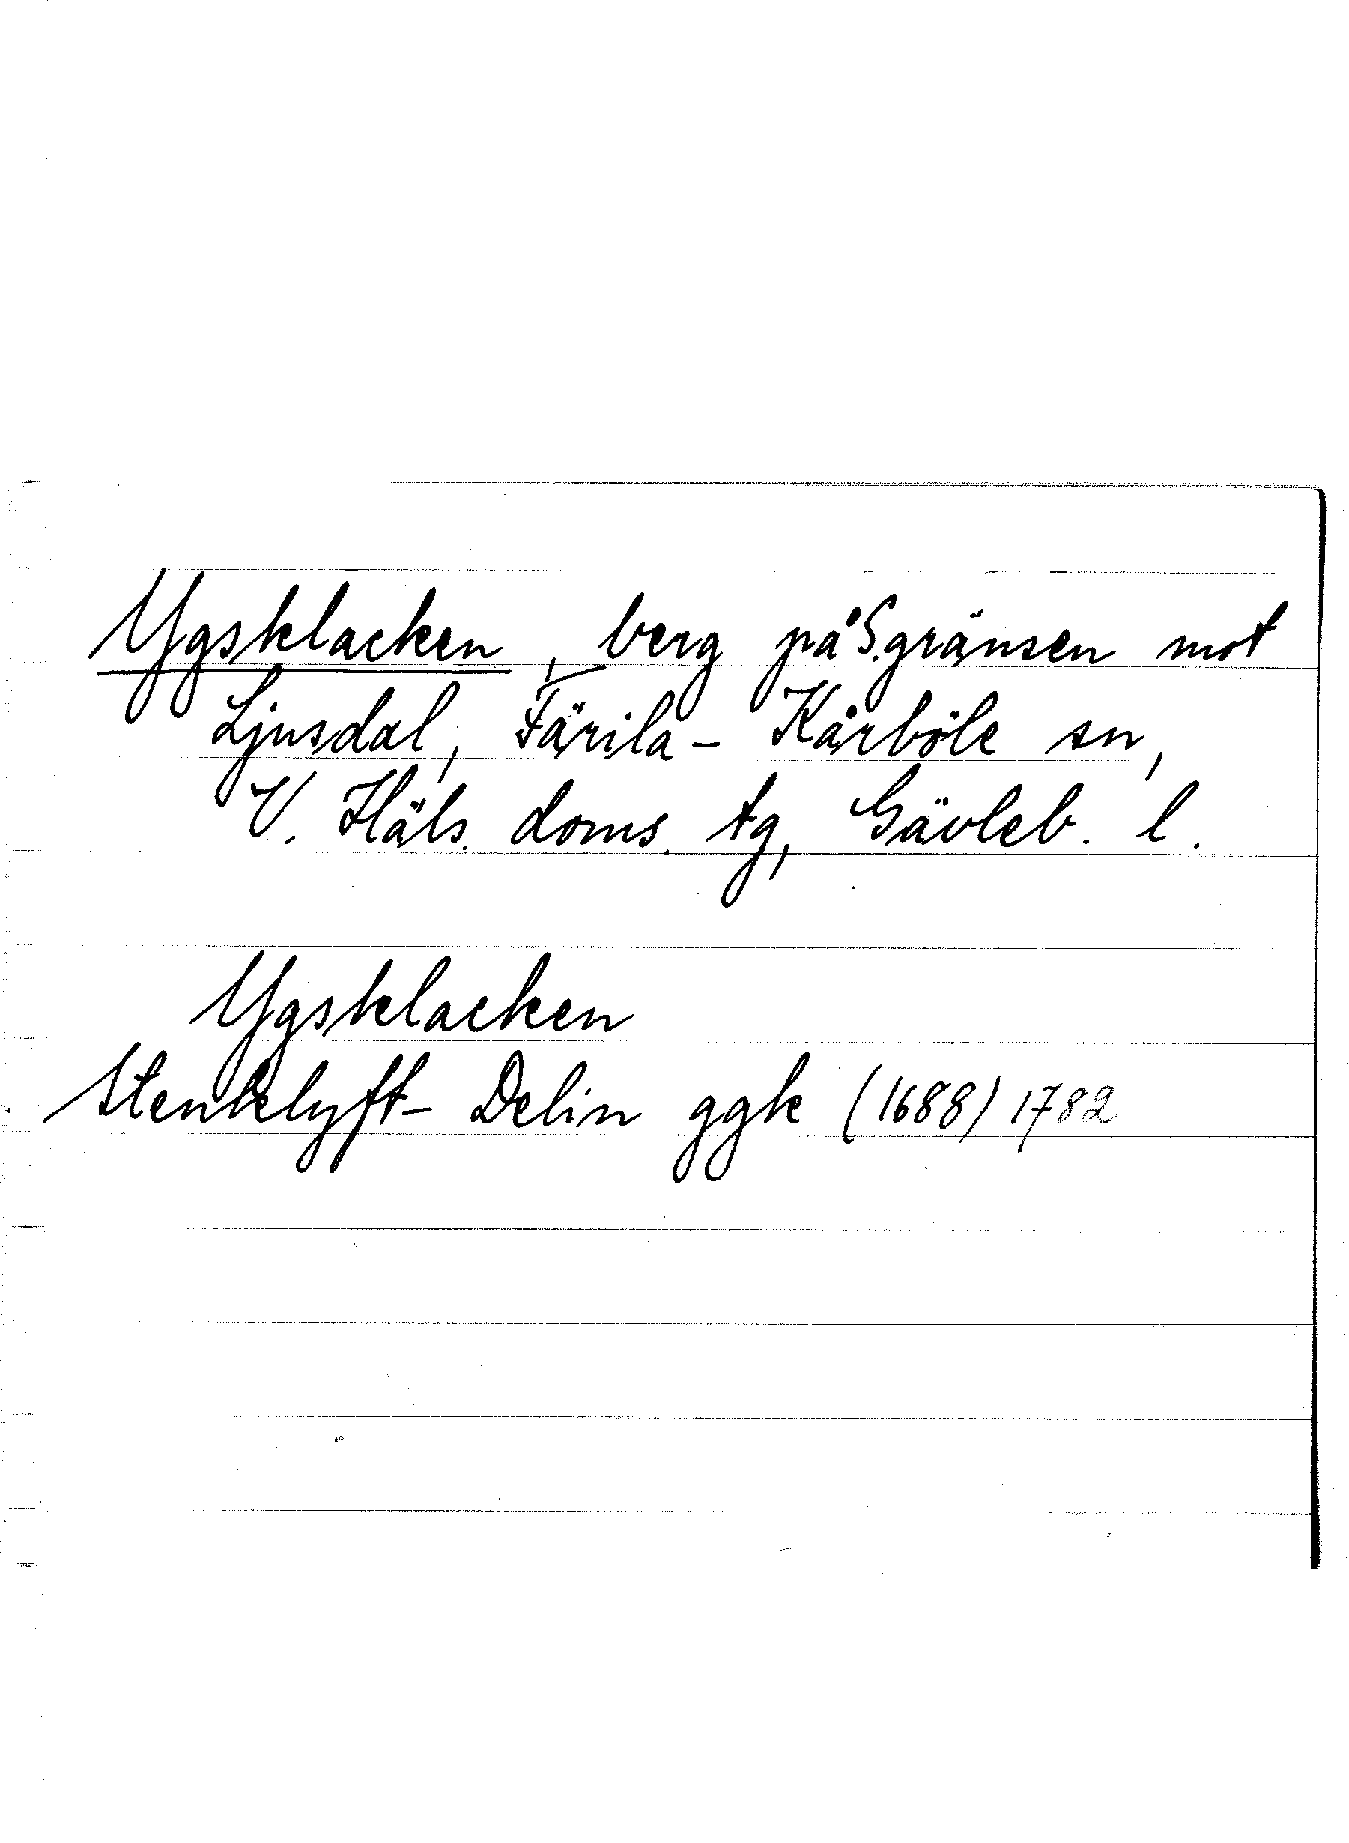 Ygsklacken, berg på S.gränsen mot
Ljusdal, Färila - Kårböle sn,
V. Häls. doms. tg, Gävleb. l.
Ygsklacken
Stenklyft- Delin ggk (1688) 1782